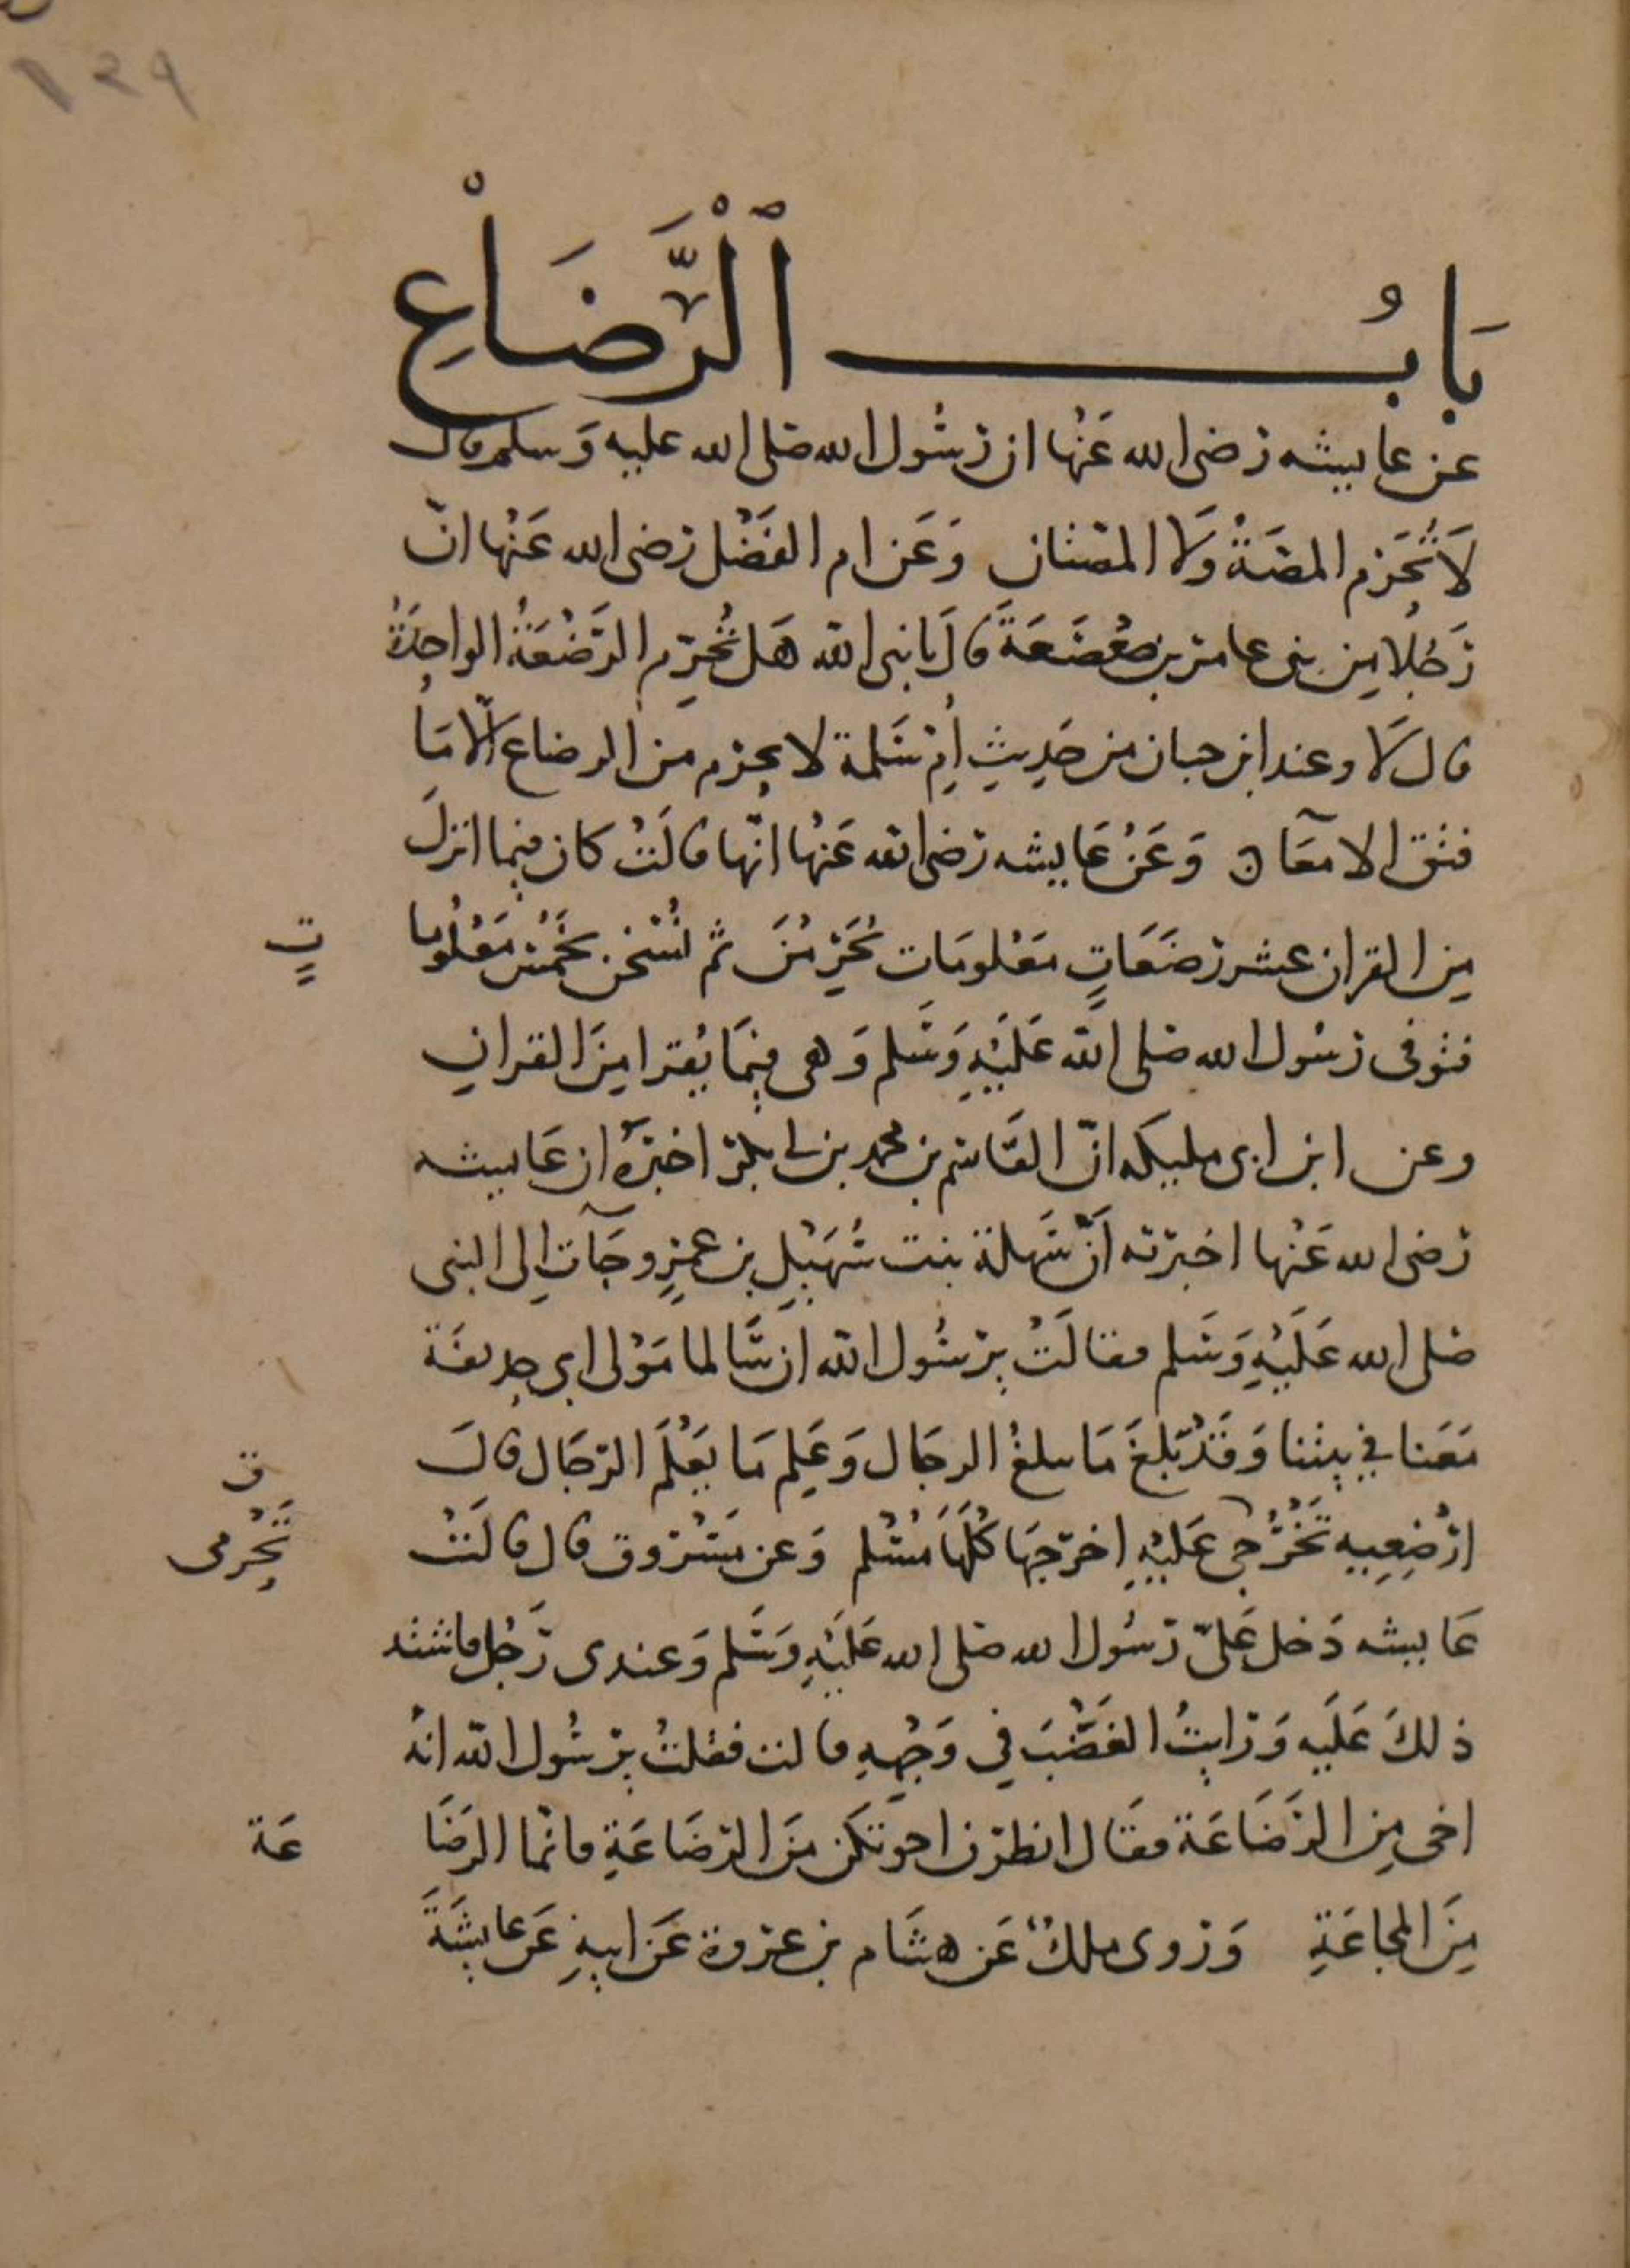 ١٤٩
بَابُ ٱلْرَّضَاْعِ
عن عايشه رضى الله عَنْها ان رسُول الله صلى الله عليه وَسلم قال
لَا تُحَرِّم المصَّةُ وَلا المصتان وَعَن ام الفَضْل رضى الله عَنْها انّ
رَجُلا مِن بنى عامر بن صَعْصَعَةَ قال يَا نبى الله هَل تُحَرِّم الرَّضْعَةُ الواحِدَةُ
قال لَا وعند ابن حبان من حَدِيثِ أُمِ سَلمة لا يحرم من الرضاع الّا مَا
فتق الامعَآ وَعَنْ عَايشه رضى الله عَنْها انّها قالَتْ كان فِيما انزلَ
مِن القران عشر رَضَعَاتٍ مَعْلومَات يُحَرِّمْنَ ثم نُسخن بخَمْسٍ مَعْلُوما
تٍ
فتوفى رسُول الله صلى الله عَلَيْهِ وَسَلم وَهى فِيمَا يُقرا مِنَ القران
وعن ابن ابى مليكه انّ القَاسم بن محمد بن ابى بكر اخبَرَهُ ان عَايشه
رضى الله عَنْها اخبرته أَنَّ سَهلة بنت سُهَيْلِ بن عمرٍو جَآت إلى النبى
صلى الله عَلَيْهِ وَسَلم فقالَتْ يرسُول الله ان سَالما مَوْلى ابى حذيفَة
مَعَنا في بيْتنا وَقَدْ بَلغَ مَا يبلغُ الرجَال وَعَلِم مَا يَعْلَمَ الرّجَال قال
ارْضِعِيهِ تَحْرُمِى عَليْهِ اخرَجهَا كُلَّهَا مُسْلم وَعن مَسْرُوق قال قالَتْ
ق
تَحْرمى
عَايشه دَخل عَليّ رسُول الله صلى الله عَلَيْهِ وَسَلم وَعندى رَجُل فاشتد
ذلكَ عَلَيه وَرَايتُ الغَضْبَ في وَجْهِهِ قالت فقلتُ يرسُول الله انهُ
اخى مِن الرَّضَاعَة فقَال انظرن اخوتكن مِنَ الرّضَاعَةِ فانّما الرَضَا
عَة
مِنَ المجاعَةِ وَروى ملكٌ عَن هشَام بن عروة عَن ابيهِ عَن عايشَةَ